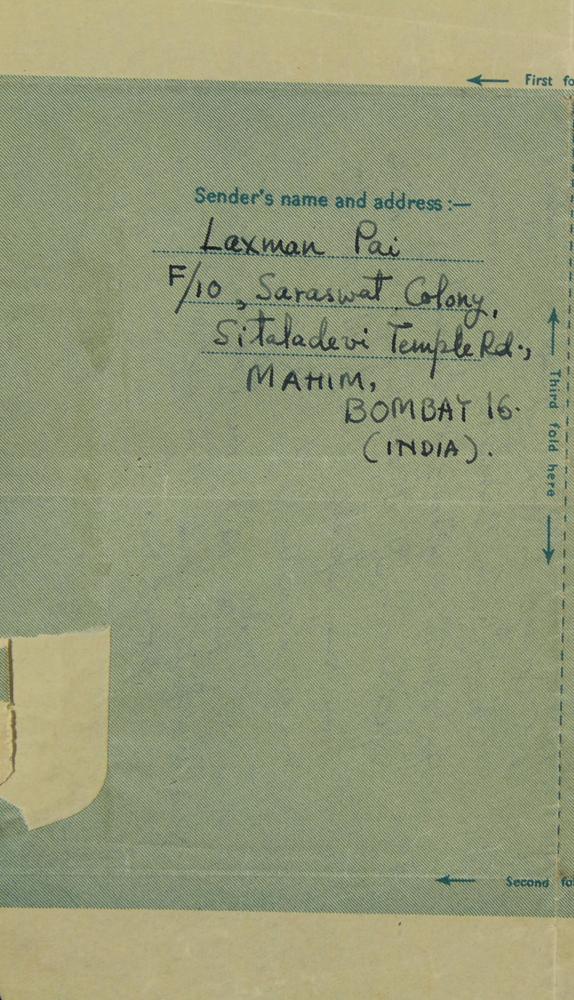 First fo
Sender's name and address :—
Laxman Pai
F/10, Saraswat Colony,
Sitaladevi Temple Rd.,
MAHIM,
BOMBAY 16.
(INDIA).
Third fold here
Second fo